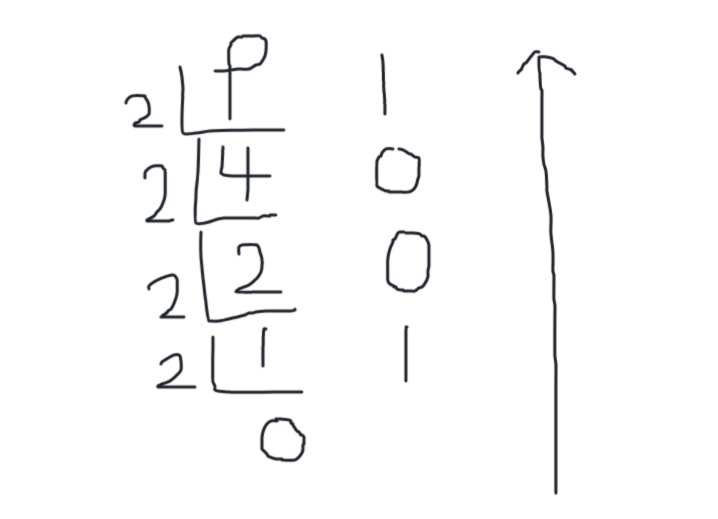 2 9 1
2 4 0
2 2 0
2 1 1
0